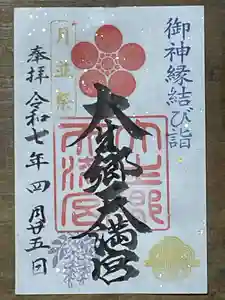 御神縁結び詣
月並祭
大生郷天満宮
奉拝 令和七年四月廿五日